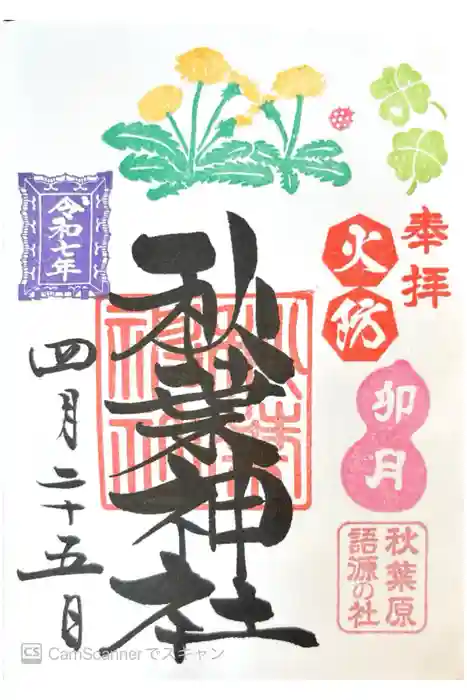 奉拝
火防
卯月
秋葉原
語源の社
秋葉神社
令和七年
四月二十五日
CS CamScannerでスキャン